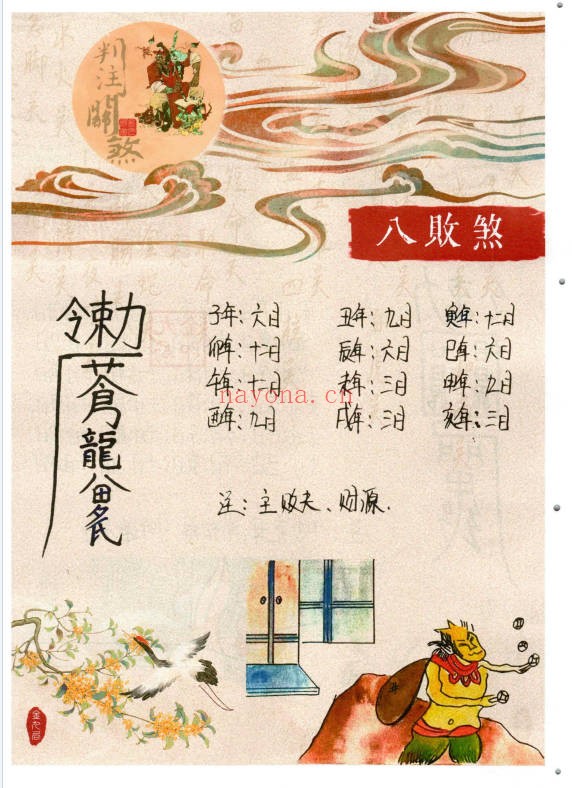 判注關煞
八敗煞
子年:六月 丑年:九月 寅年:十二月
卯年:十二月 辰年:六月 巳年:六月
午年:十二月 未年:三月 申年:九月
酉年:九月 戌年:三月 亥年:三月
nayona.cn
注:主败夫、财源.
勅令
蒼龍